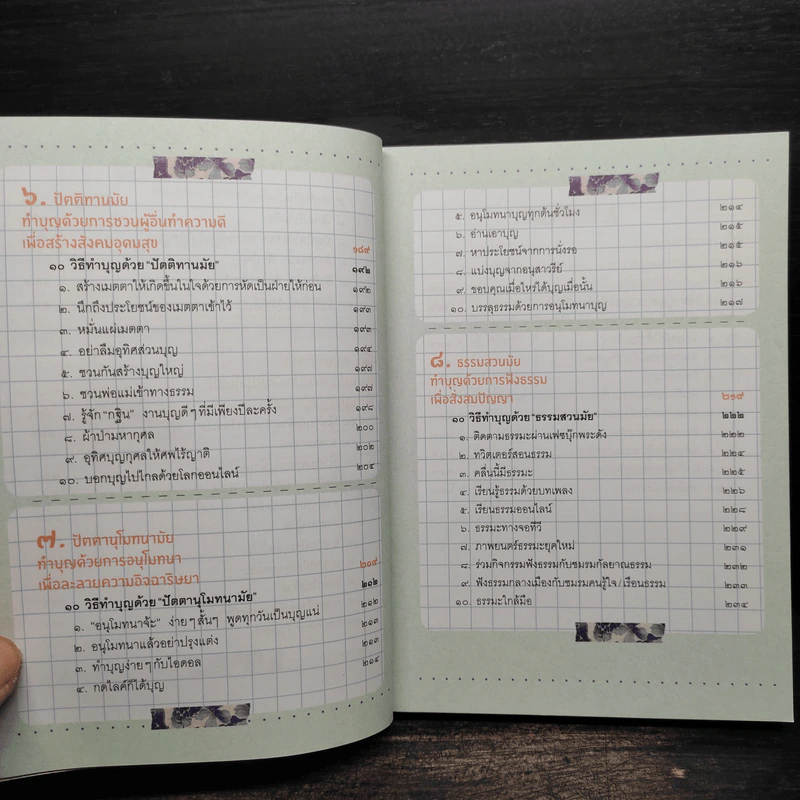 ๖. ปัตติทานมัย
ทำบุญด้วยการชวนผู้อื่นทำความดี
เพื่อสร้างสังคมอุดมสุข ๑๘๙
๑๐ วิธีทำบุญด้วย "ปัตติทานมัย" ๑๙๒
๑. สร้างเมตตาให้เกิดขึ้นในใจด้วยการหัดเป็นฝ่ายให้ก่อน ๑๙๒
๒. นึกถึงประโยชน์ของเมตตาเข้าไว้ ๑๙๓
๓. หมั่นแผ่เมตตา ๑๙๓
๔. อย่าลืมอุทิศส่วนบุญ ๑๙๔
๕. ชวนกันสร้างบุญใหญ่ ๑๙๗
๖. ชวนพ่อแม่เข้าทางธรรม ๑๙๗
๗. รู้จัก "กฐิน" งานบุญดีๆ ที่มีเพียงปีละครั้ง ๑๙๘
๘. ผ้าป่ามหากุศล ๒๐๐
๙. อุทิศบุญกุศลให้ศพไร้ญาติ ๒๐๒
๑๐. บอกบุญไปไกลด้วยโลกออนไลน์ ๒๐๔
๗. ปัตตานุโมทนามัย
ทำบุญด้วยการอนุโมทนา
เพื่อละลายความอิจฉาริษยา ๒๐๙
๑๐ วิธีทำบุญด้วย "ปัตตานุโมทนามัย" ๒๑๒
๑. "อนุโมทนาจ้ะ" ง่ายๆ สั้นๆ พูดทุกวันเป็นบุญแน่ ๒๑๒
๒. อนุโมทนาแล้วอย่าปรุงแต่ง ๒๑๓
๓. ทำบุญง่ายๆ กับไอดอล ๒๑๓
๔. กดไลค์ก็ได้บุญ ๒๑๔
๕. อนุโมทนาบุญทุกต้นชั่วโมง ๒๑๔
๖. อ่านเอาบุญ ๒๑๕
๗. หาประโยชน์จากการนั่งรอ ๒๑๕
๘. แบ่งบุญจากอนุสาวรีย์ ๒๑๖
๙. ขอบคุณเมื่อไหร่ได้บุญเมื่อนั้น ๒๑๖
๑๐. บรรลุธรรมด้วยการอนุโมทนาบุญ ๒๑๗
๘. ธรรมสวนมัย
ทำบุญด้วยการฟังธรรม
เพื่อสั่งสมปัญญา ๒๑๙
๑๐ วิธีทำบุญด้วย "ธรรมสวนมัย" ๒๒๒
๑. ติดตามธรรมะผ่านเฟซบุ๊กพระดัง ๒๒๒
๒. ทวิตเตอร์สอนธรรม ๒๒๔
๓. คลื่นนี้มีธรรมะ ๒๒๕
๔. เรียนรู้ธรรมด้วยบทเพลง ๒๒๖
๕. เรียนธรรมออนไลน์ ๒๒๘
๖. ธรรมะทางจอทีวี ๒๒๙
๗. ภาพยนตร์ธรรมะยุคใหม่ ๒๓๑
๘. ร่วมกิจกรรมฟังธรรมกับชมรมกัลยาณธรรม ๒๓๒
๙. ฟังธรรมกลางเมืองกับชมรมคนรู้ใจ/เรือนธรรม ๒๓๓
๑๐. ธรรมะใกล้มือ ๒๓๔